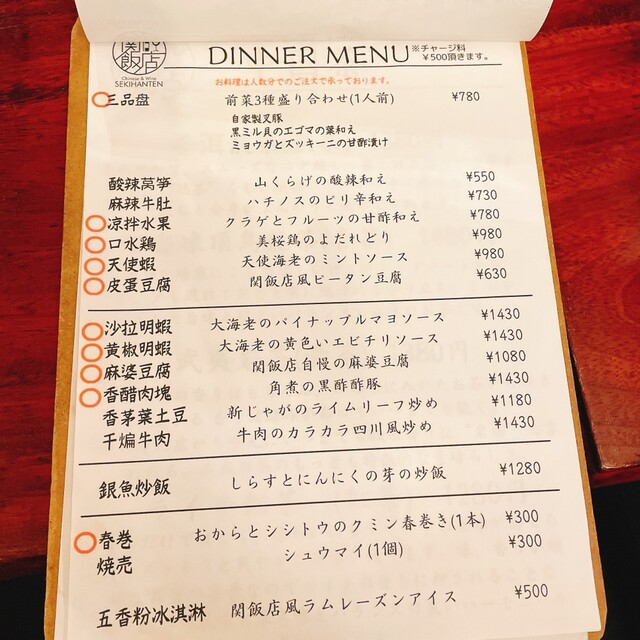 関飯店
Chinese & Wine
SEKIHANTEN
DINNER MENU
※チャージ料
￥500頂きます。
お料理は人数分でのご注文で承っております。
三品盘 前菜3種盛り合わせ(1人前) ¥780
自家製叉豚
黒ミル貝のエゴマの葉和え
ミョウガとズッキーニの甘酢漬け
酸辣萵笋 山くらげの酸辣和え ¥550
麻辣牛肚 ハチノスのピリ辛和え ¥730
凉拌水果 クラゲとフルーツの甘酢和え ¥780
口水鶏 美桜鶏のよだれどり ¥980
天使蝦 天使海老のミントソース ¥980
皮蛋豆腐 関飯店風ピータン豆腐 ¥630
沙拉明蝦 大海老のパイナップルマヨソース ¥1430
黄椒明蝦 大海老の黄色いエビチリソース ¥1430
麻婆豆腐 関飯店自慢の麻婆豆腐 ¥1080
香醋肉塊 角煮の黒酢酢豚 ¥1430
香茅葉土豆 新じゃがのライムリーフ炒め ¥1180
干煸牛肉 牛肉のカラカラ四川風炒め ¥1430
銀魚炒飯 しらすとにんにくの芽の炒飯 ¥1280
春巻 おからとシシトウのクミン春巻き(1本) ¥300
焼売 シュウマイ(1個) ¥300
五香粉冰淇淋 関飯店風ラムレーズンアイス ¥500